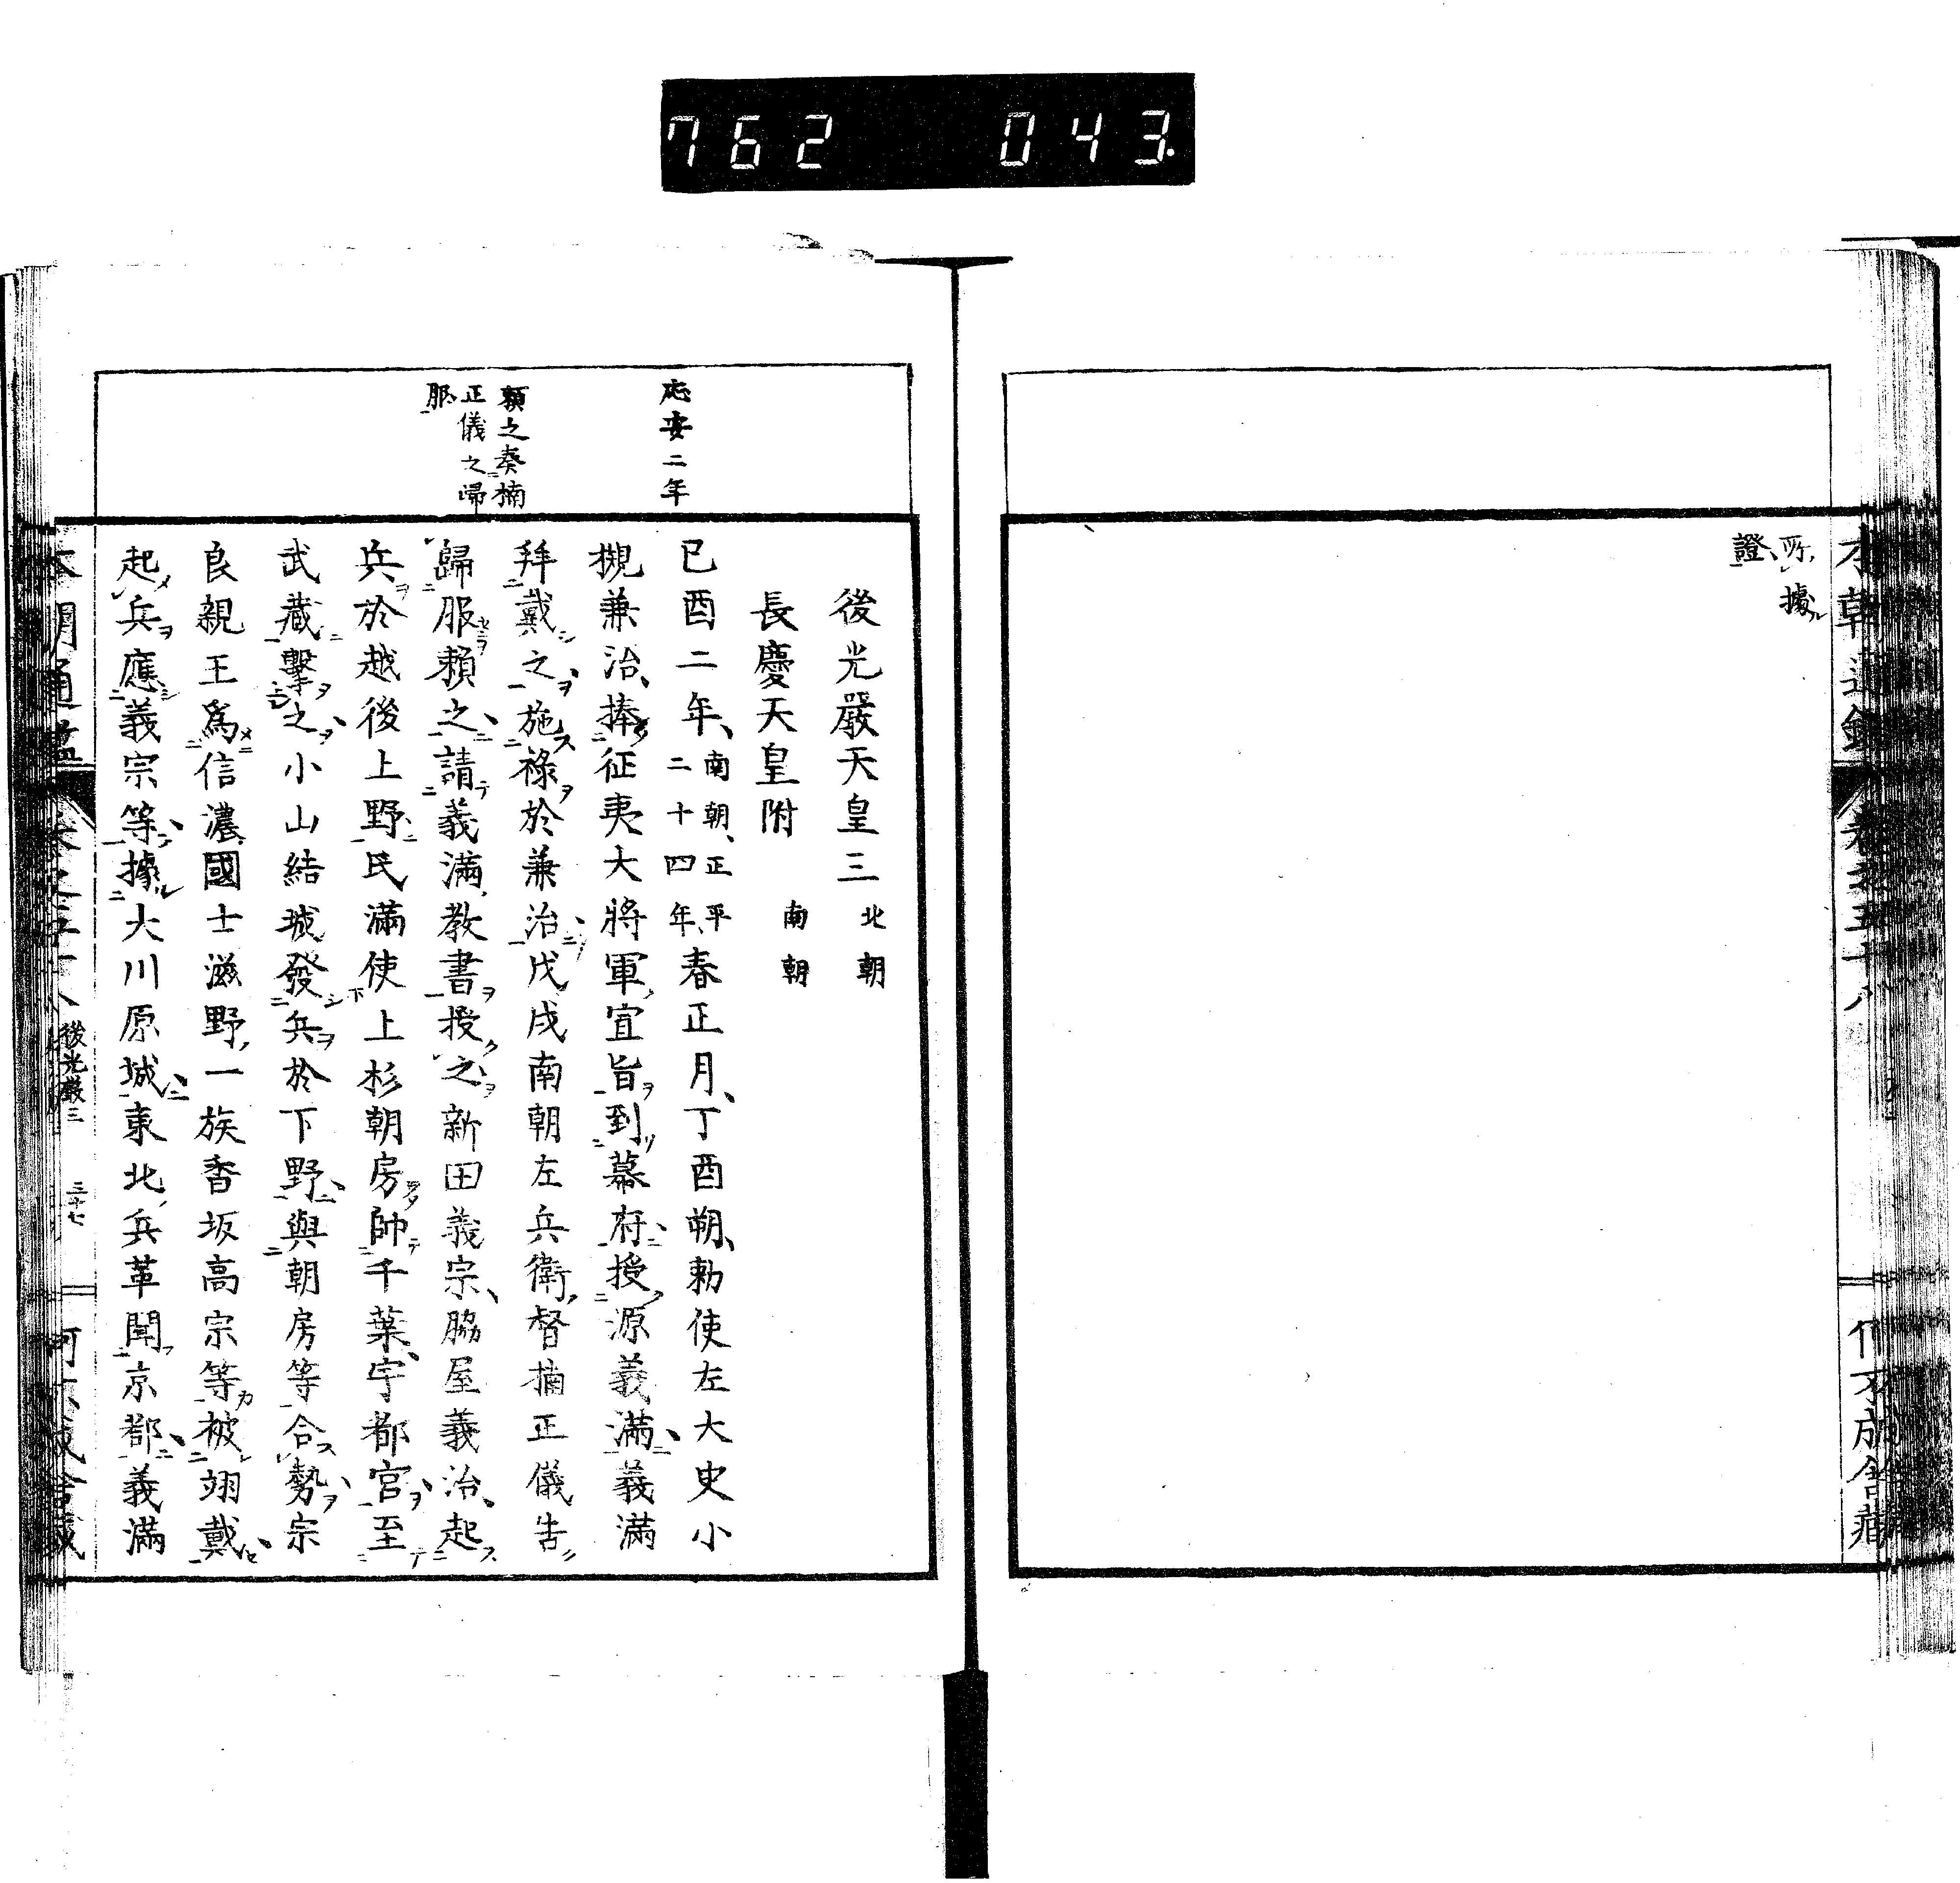 762 043.
所據
證
後光嚴天皇三 北朝
長慶天皇附 南朝
應安二年
己酉二年、南朝、正平二十四年、春正月、丁酉朔、勅使左大史小
槻兼治、捧征夷大將軍宣旨到幕府授源義滿義滿
頼之奏楠
正儀之歸
服
拜戴之、施祿於兼治、戊戌南朝左兵衛督楠正儀告
歸服頼之、請義滿教書授之、新田義宗、脇屋義治、起
兵於越後上野、民滿使上杉朝房帥千葉、宇都宮、至
武藏擊之、小山結城發兵於下野、與朝房等合勢、宗
良親王爲信濃國士滋野一族香坂高宗等被翊戴、
起兵應義宗等、據大川原城、東北兵革聞京都、義滿
本朝通鑑
後光嚴三
三十七